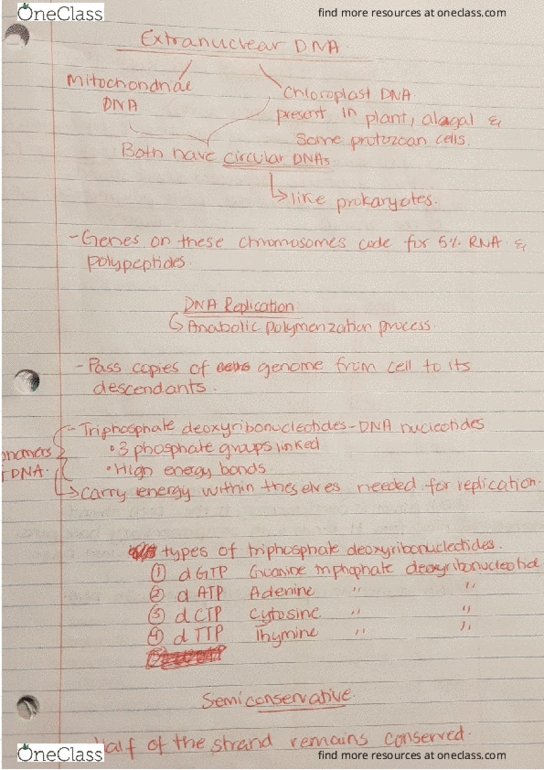 OneClass
find more resources at oneclass.com
Extranuclear DNA
Mitochondriae DNA
Chloroplast DNA.
present in plant, alagal &
Some protozoan cells.
Both have circular DNAs
↳ like prokaryotes.
- Genes on these chromosomes code for 5% RNA &
polypeptides.
DNA Replication
↳ Anabolic polymerization process
- Pass copies of cells genome from cell to its
descendants.
- Triphosphate deoxyribonucleotides - DNA nucleotides
• 3 phosphate groups linked
• High energy bonds.
DNA.
↳ Carry energy within theselves needed for replication.
types of triphosphate deoxyribonucleotides.
① dGTP Guanine triphosphate deoxyribonucleotide
② dATP Adenine " "
③ dCTP Cytosine " "
④ dTTP Thymine " "
Semiconservative.
Half of the strand remains conserved.
OneClass
find more resources at oneclass.com